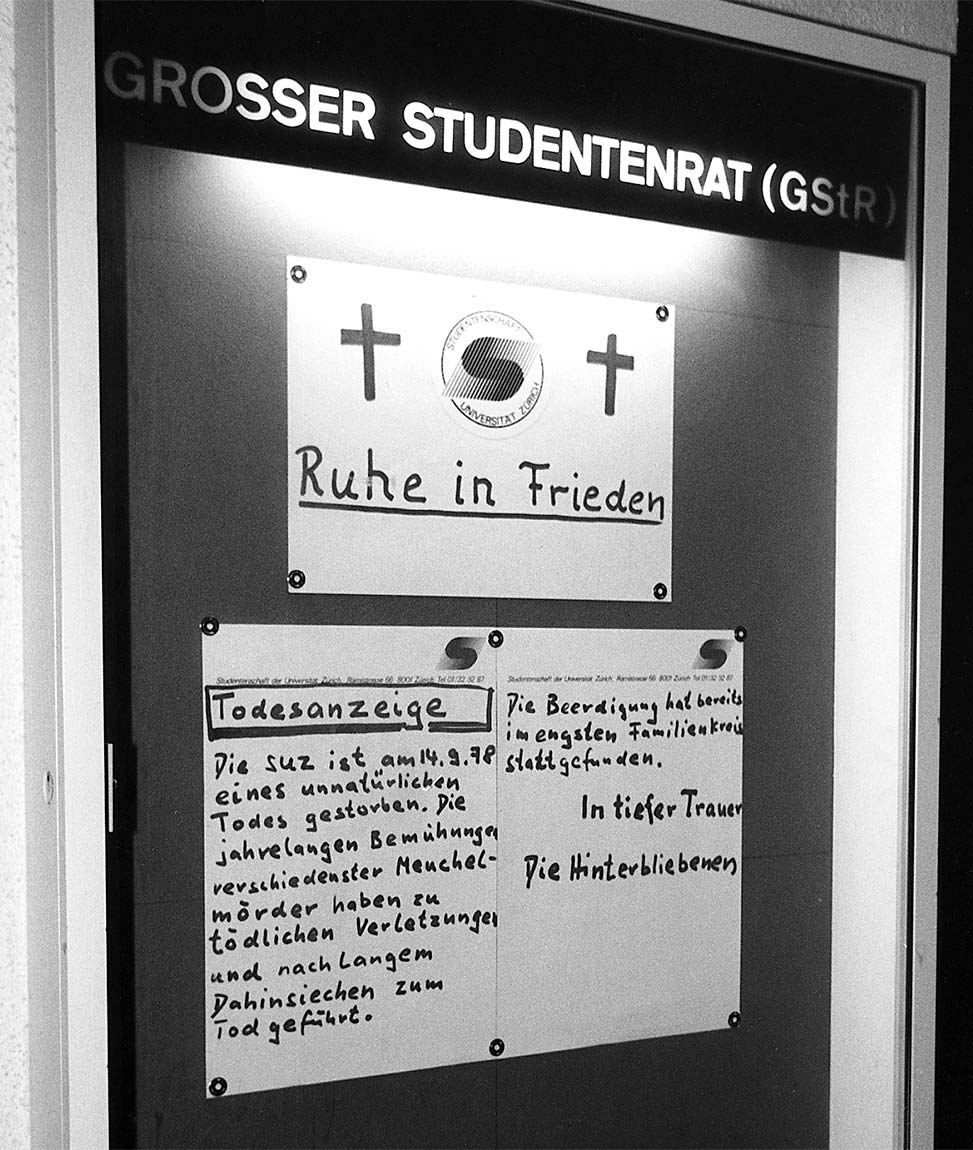 GROSSER STUDENTENRAT (GStR)
STUDENTENSCHAFT
UNIVERSITÄT ZÜRICH
Ruhe in Frieden
Studentenschaft der Universität Zürich, Rämistrasse 66 8001 Zürich Tel 01/32 92 87
Todesanzeige
Die SUZ ist am 14.9.78
eines unnatürlichen
Todes gestorben. Die
jahrelangen Bemühungen
verschiedenster Meuchel-
mörder haben zu
tödlichen Verletzungen
und nach Langem
Dahinsiechen zum
Tod geführt.
Studentenschaft der Universität Zürich, Rämistrasse 66 8001 Zürich Tel 01/32 92 87
Die Beerdigung hat bereits
im engsten Familienkreis
stattgefunden.
In tiefer Trauer
Die Hinterbliebenen